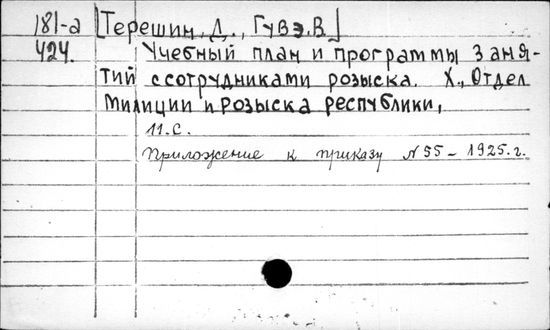 181-а [Терешин, Д., Гувэ, В]
424. Учебный план и программы заня-
тий с сотрудниками розыска. Х., Отдел
милиции и розыска республики,
11.с.
Приложение к приказу №55-1925.г.